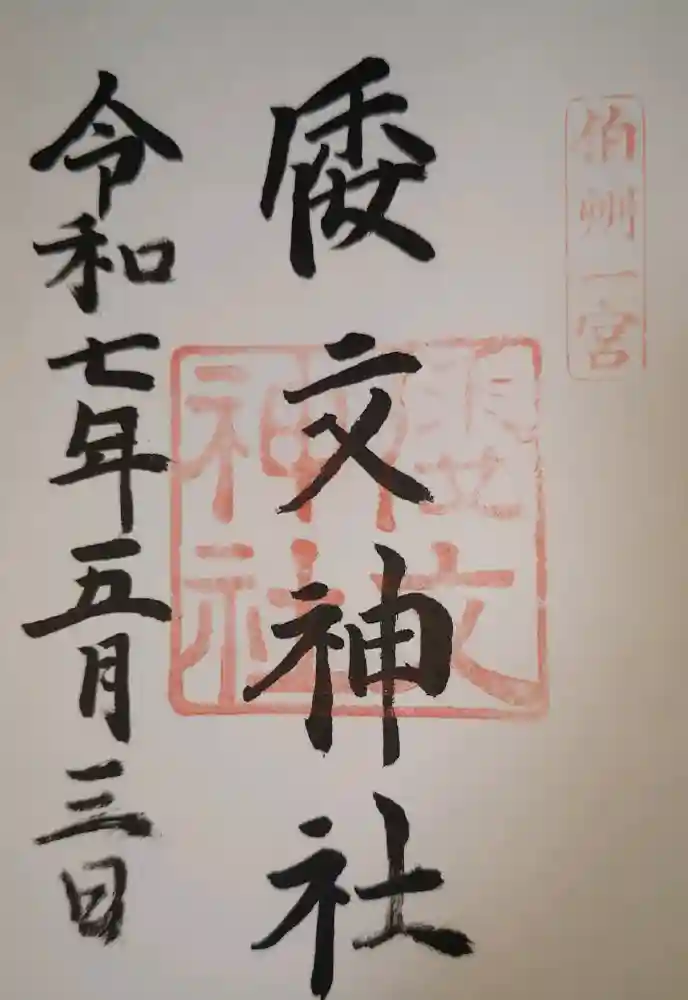 伯州一宮
倭文神社
倭文神社
令和七年五月三日